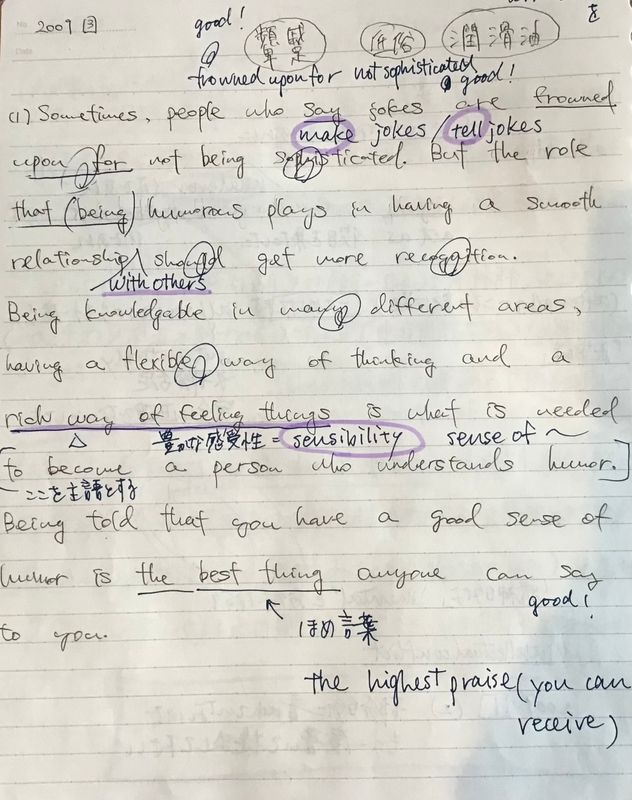 2009 3
good!
顰蹙 低俗 潤滑油
を
frowned upon for not sophisticated
good!
(1) Sometimes, people who say jokes are frowned
make jokes / tell jokes
upon for not being sophisticated. But the role
that (being) humorous plays in having a smooth
relationship should get more recognition.
with others
Being knowledgable in many different areas,
having a flexible way of thinking and a
rich way of feeling things is what is needed
豊かな感受性 = sensibility sense of ~
[to become a person who understands humor.]
ここを主語とする
Being told that you have a good sense of
humor is the best thing anyone can say
good!
to you.
ほめ言葉
the highest praise (you can
receive)